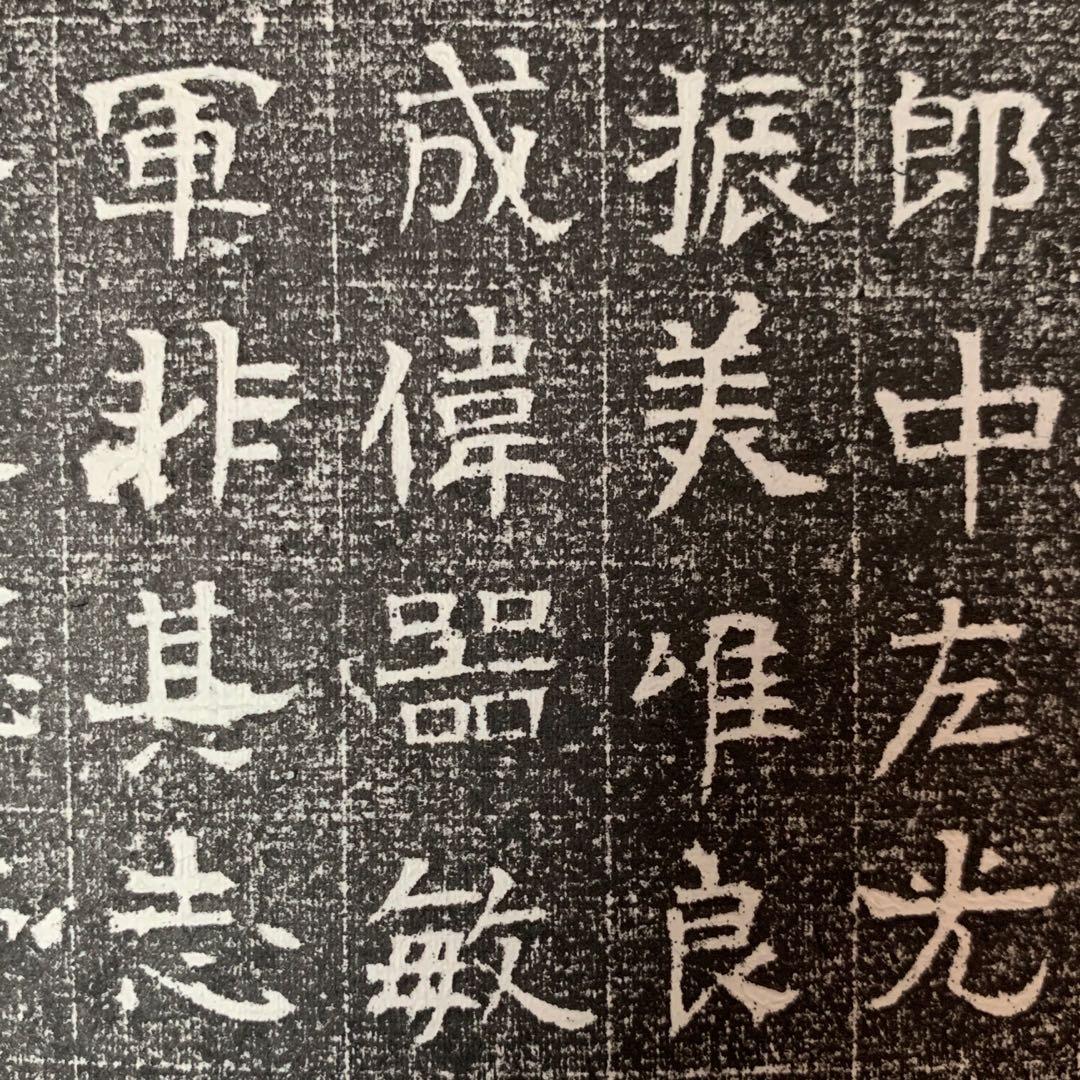 郎中左光
振美唯良
成偉器敏
軍非其志